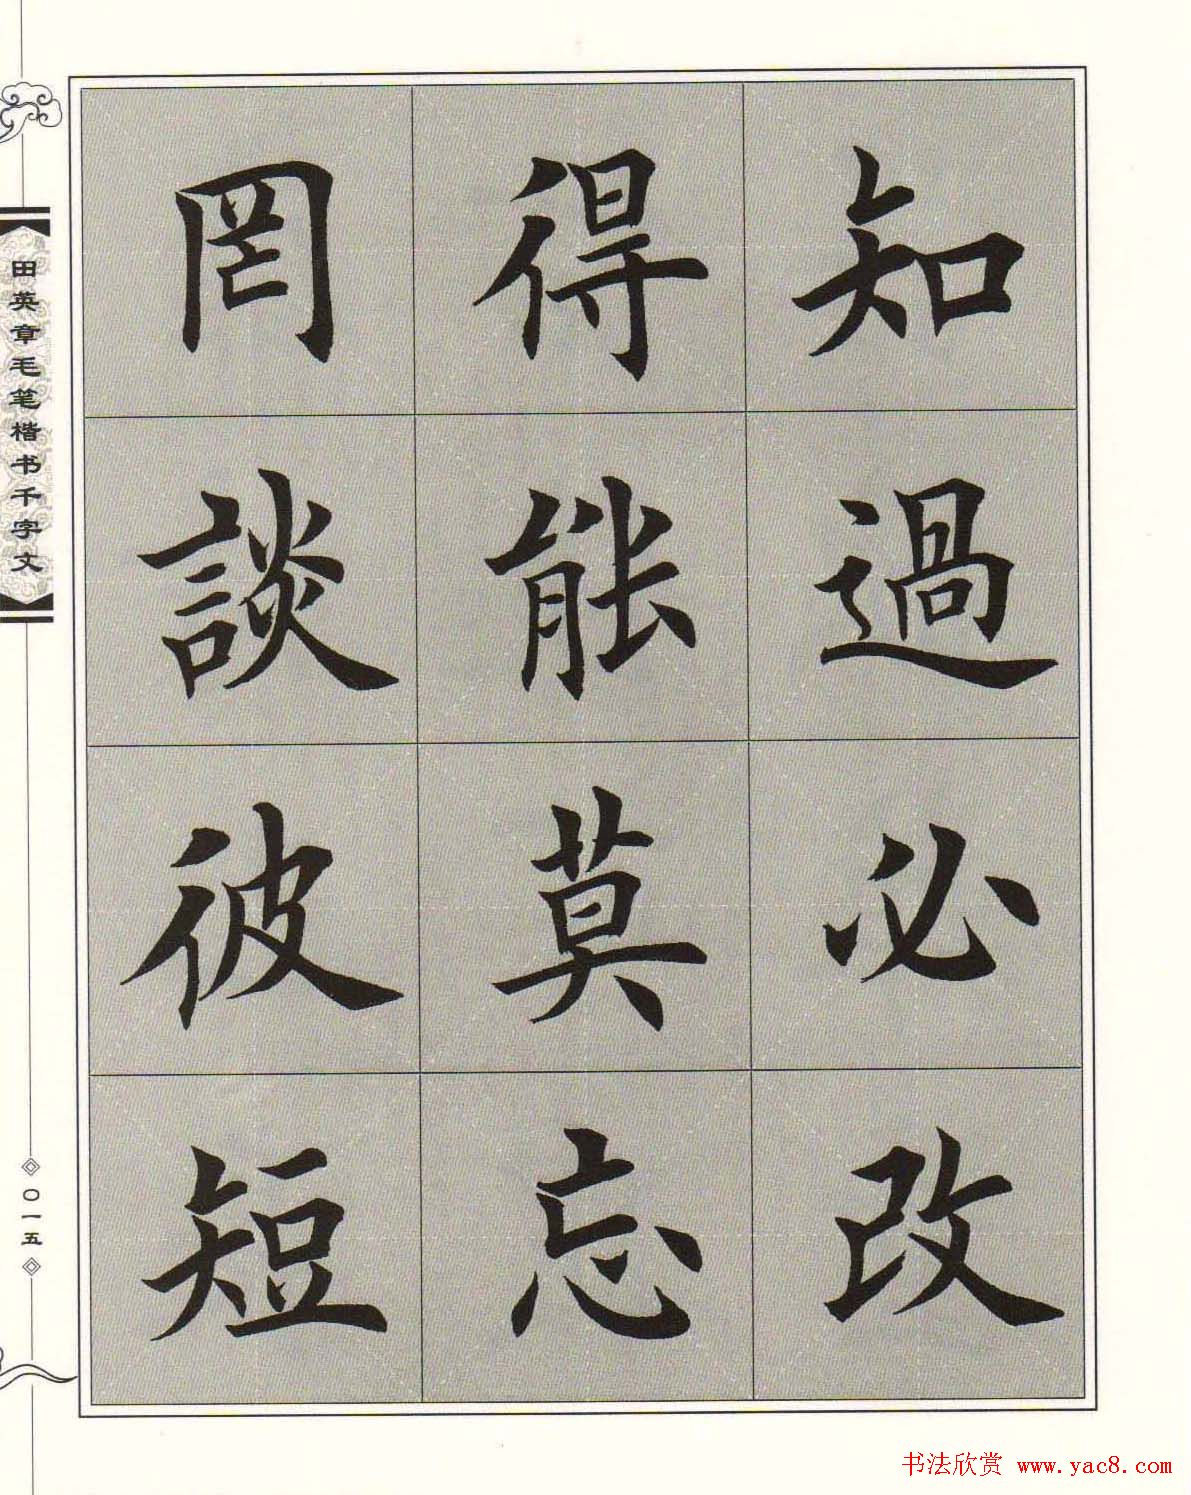 知過必改
得能莫忘
罔談彼短
田英章毛笔楷书千字文
〇一五
书法欣赏 www.yac8.com